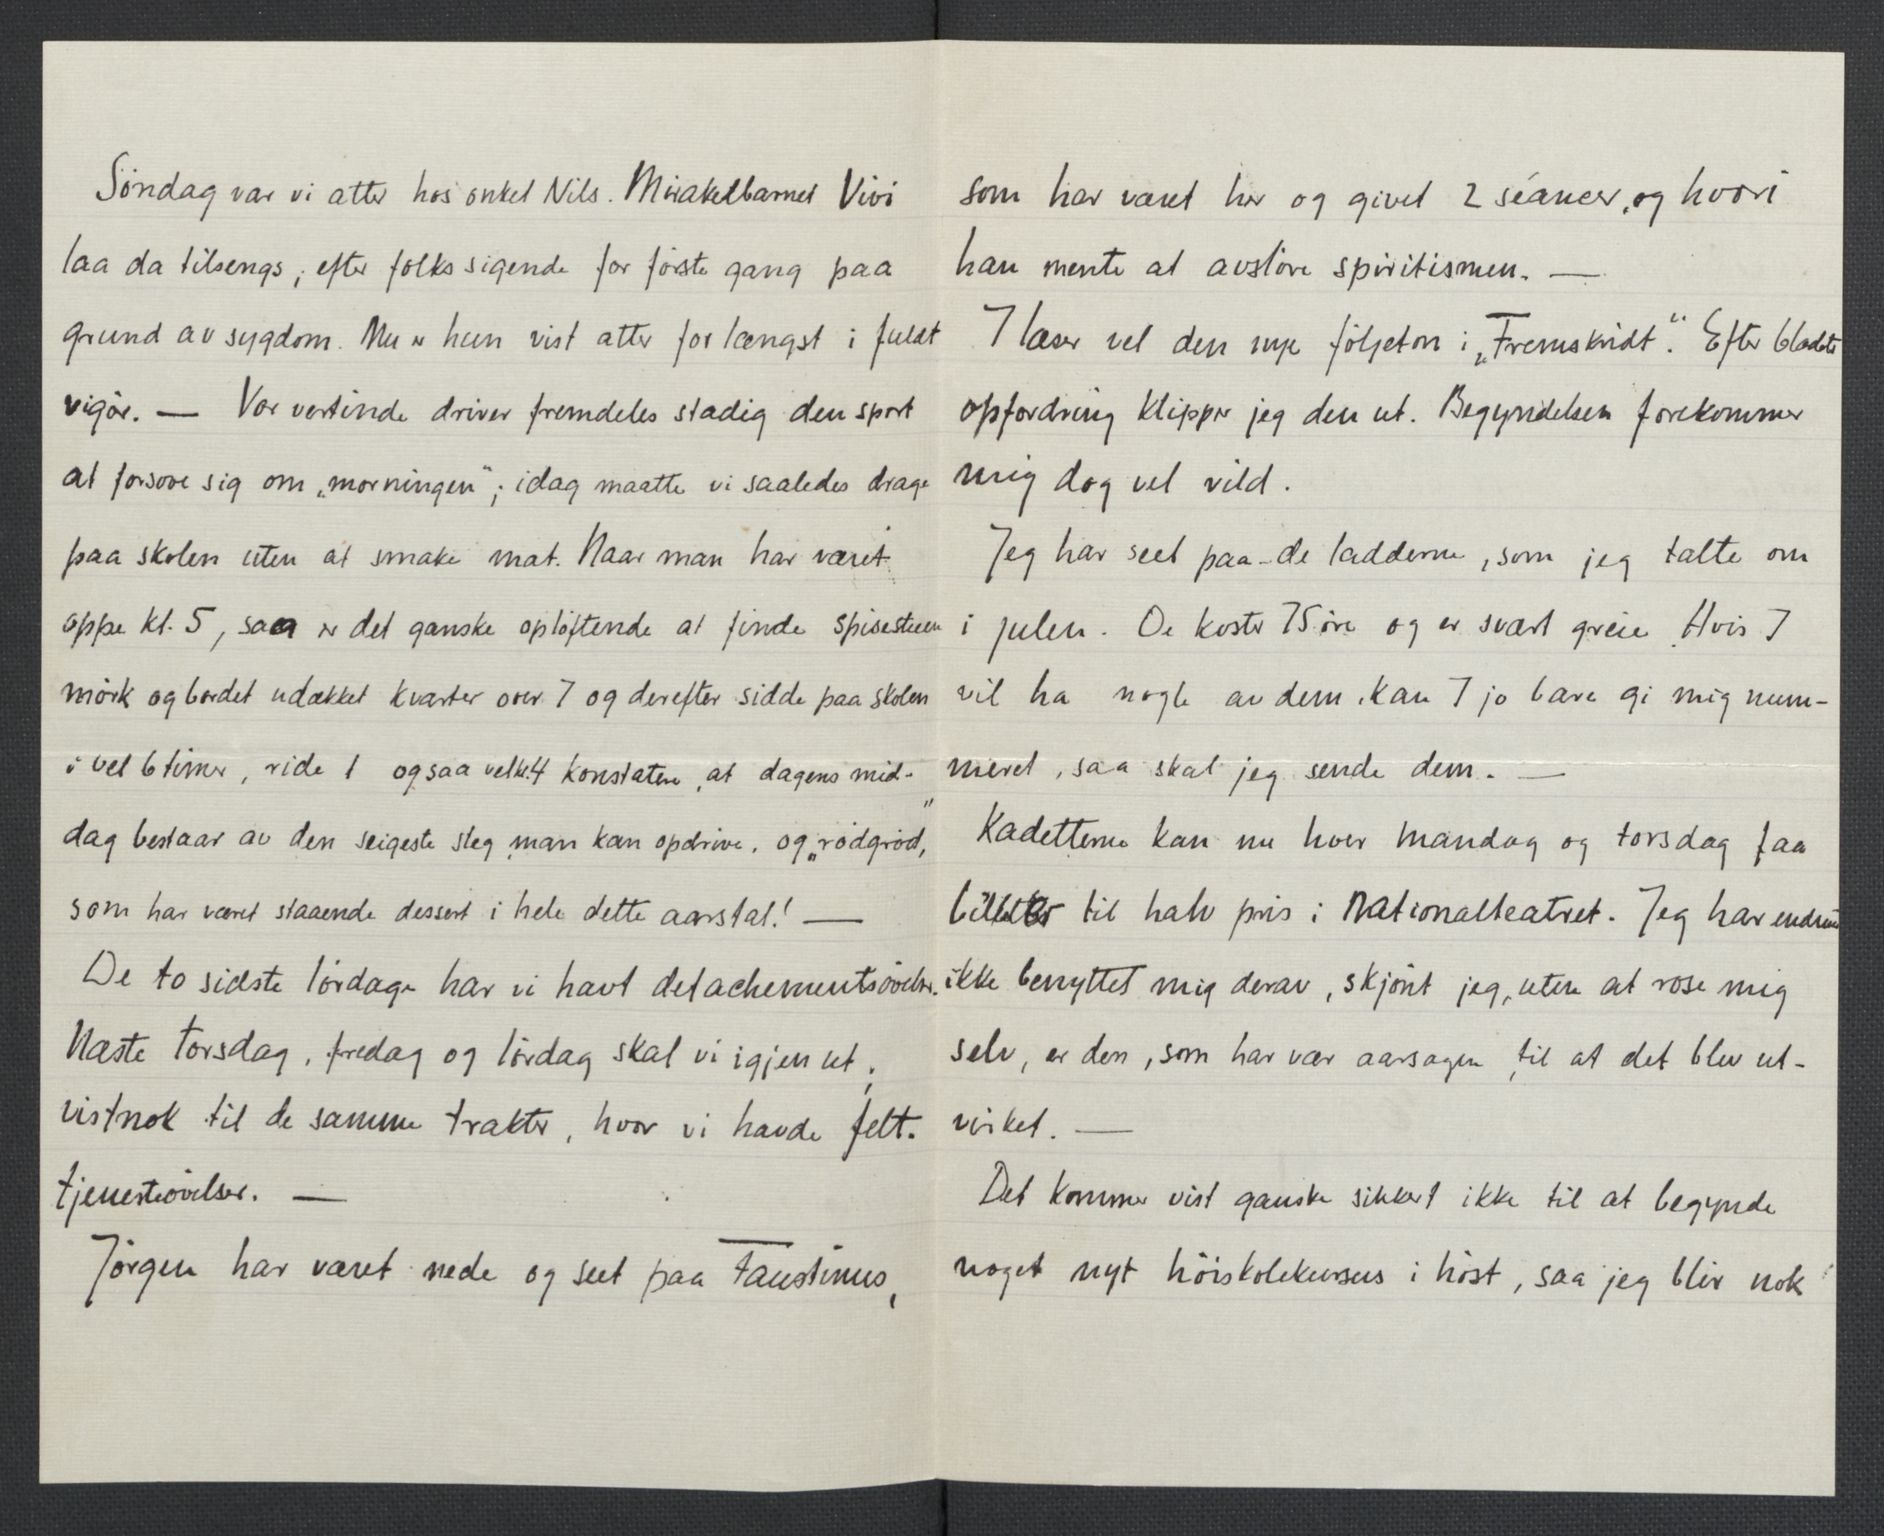 Søndag var vi atter hos onkel Nils. Mirakelbarnet Vivi
laa da tilsengs, efter folks sigende for første gang paa
grund av sygdom. Nu er hun vist atter for længst i fuldt
vigør. — Vor vertinde driver fremdeles stadig den sport
at forsove sig om „morningen"; idag maatte vi saaledes drage
paa skolen uten at smake mat. Naar man har været
oppe kl. 5, saa er det ganske opløftende at finde spisestuen
mørk og bordet udækket kvarter over 7 og derefter sidde paa skolen
i vel 6 timer, ride 1 ogsaa vel kl. 4 konstatere, at dagens mid-
dag bestaar av den seigeste steg man kan opdrive, og „rødgrød",
som har været staaende dessert i hele dette aarstal! —
De to sidste lørdage har vi havt detachementsøvelser.
Næste torsdag, fredag og lørdag skal vi igjen ut,
vistnok til de samme trakter, hvor vi havde felt-
tjenesteøvelser. —
Jørgen har været nede og seet paa Faustinus,
som har været her og givet 2 séancer, og hvori
han mente at avsløre spiritismen. —
I læser vel den nye føljeton i „Fremskridt". Efter bladets
opfordring klipper jeg den ut. Begyndelsen forekommer
mig dog vel vild.
Jeg har seet paa de ladderne, som jeg talte om
i julen. De koster 75 øre og er svært greie. Hvis I
vil ha nogle av dem, kan I jo bare gi mig num-
meret, saa skal jeg sende dem. —
Kadetterne kan nu hver mandag og torsdag faa
billetter til halv pris i Nationalteatret. Jeg har endnu
ikke benyttet mig derav, skjønt jeg, uten at rose mig
selv, er den, som har vær aarsagen til at det blev ut-
virket. —
Det kommer vist ganske sikkert ikke til at begynde
noget nyt høiskolekursus i høst, saa jeg blir nok